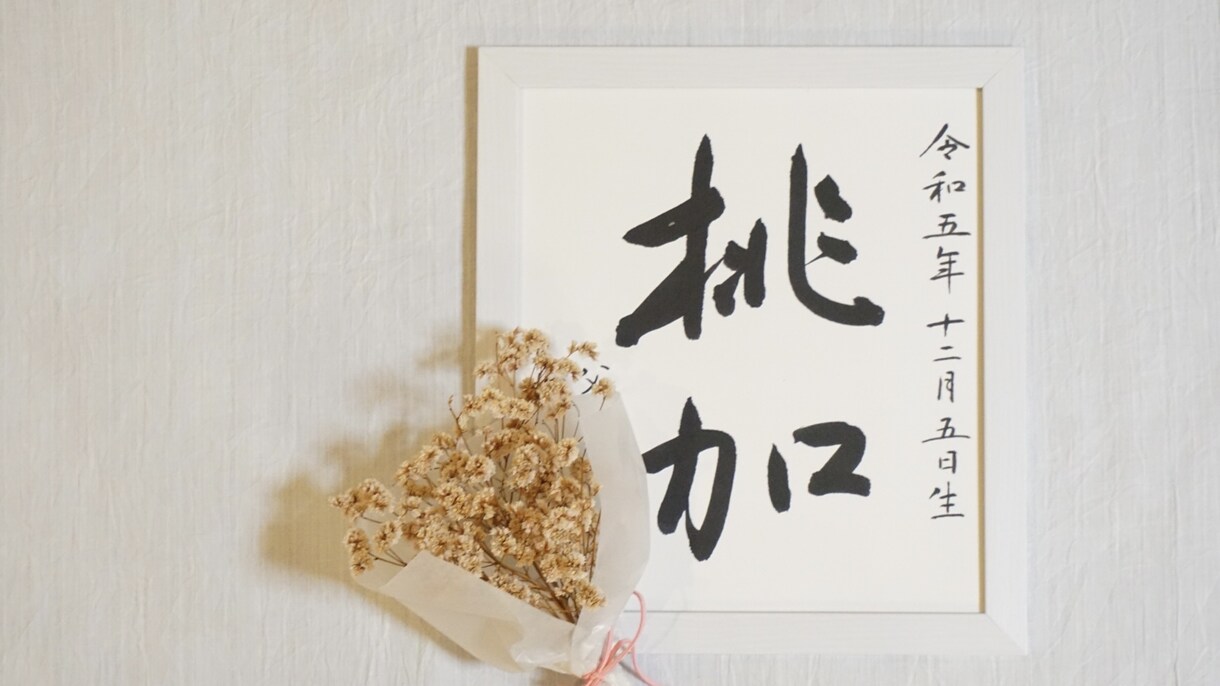 令和五年 十二月五日生
桃加
父